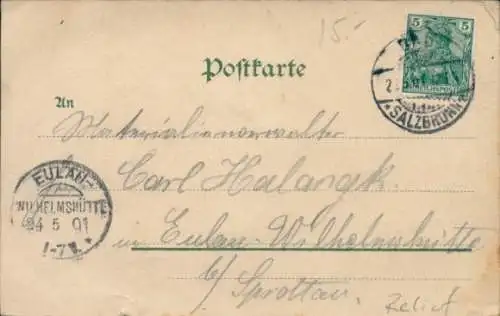 15.-
5 5
Postkarte
SALZBRUNN
An
Materialienverwalter
Carl Halangk.
EULAU-
WILHELMSHÜTTE
24 5 01
1-7N.
in Eulau-Wilhelmshütte
b/ Sprottau.
Relief